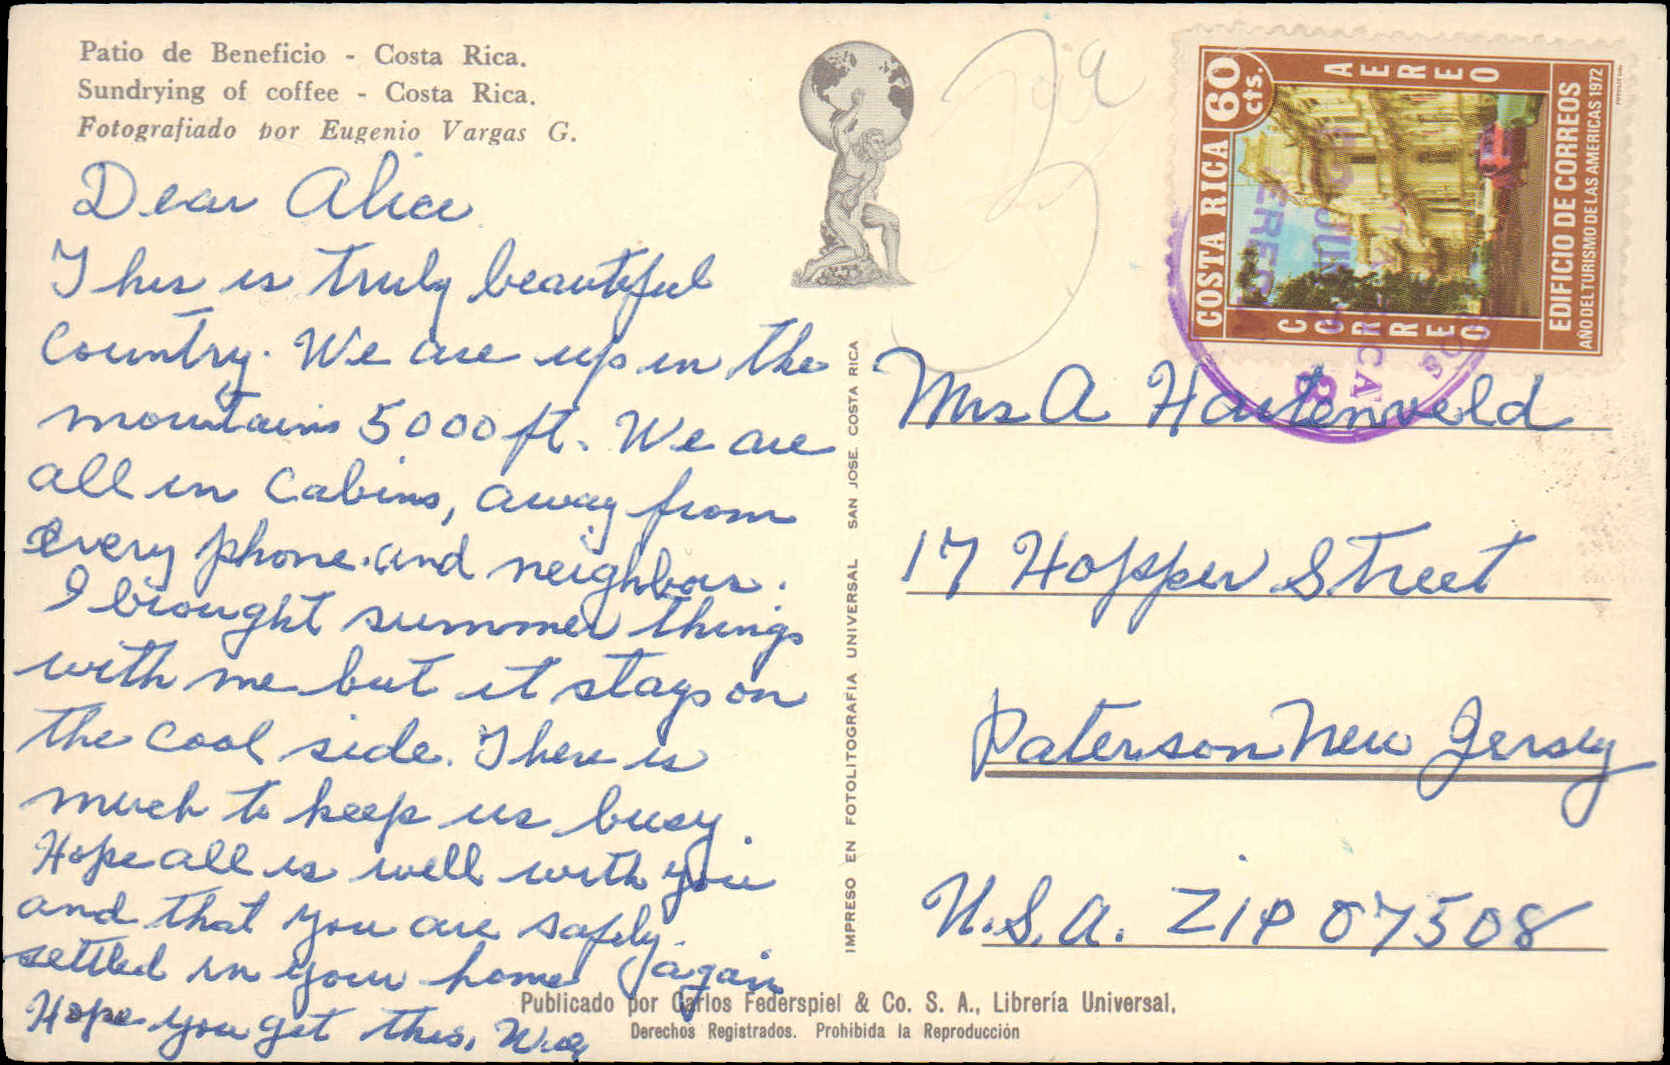 Patio de Beneficio - Costa Rica.
Sundrying of coffee - Costa Rica.
Fotografiado por Eugenio Vargas G.
Dear Alice
This is truly beautiful
Country. We are up in the
mountains 5000 ft. We are
all in Cabins, away from
every phone and neighbor.
I brought summer things
with me but it stays on
the cool side. There is
much to keep us busy.
Hope all is well with you
and that you are safely
settled in your home again
Hope you get this.
IMPRESO EN FOTOLITOGRAFIA UNIVERSAL SAN JOSE, COSTA RICA
COSTA RICA 60 cts.
AEREO
CORREO
EDIFICIO DE CORREOS
AÑO DEL TURISMO DE LAS AMERICAS 1972
Mrs A Hartenveld
17 Hopper Street
Paterson New Jersey
U.S.A. ZIP 07508
Publicado por Carlos Federspiel & Co. S. A., Librería Universal.
Derechos Registrados. Prohibida la Reproducción